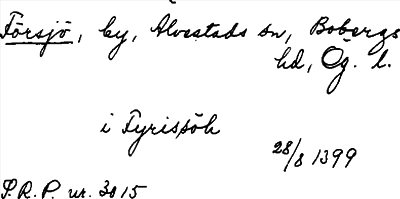 Försjö, by, Alvestads sn, Bobergs
hd, Ög. l.
i Fyrisjöh
28/8 1399
S.R.P. nr. 3015